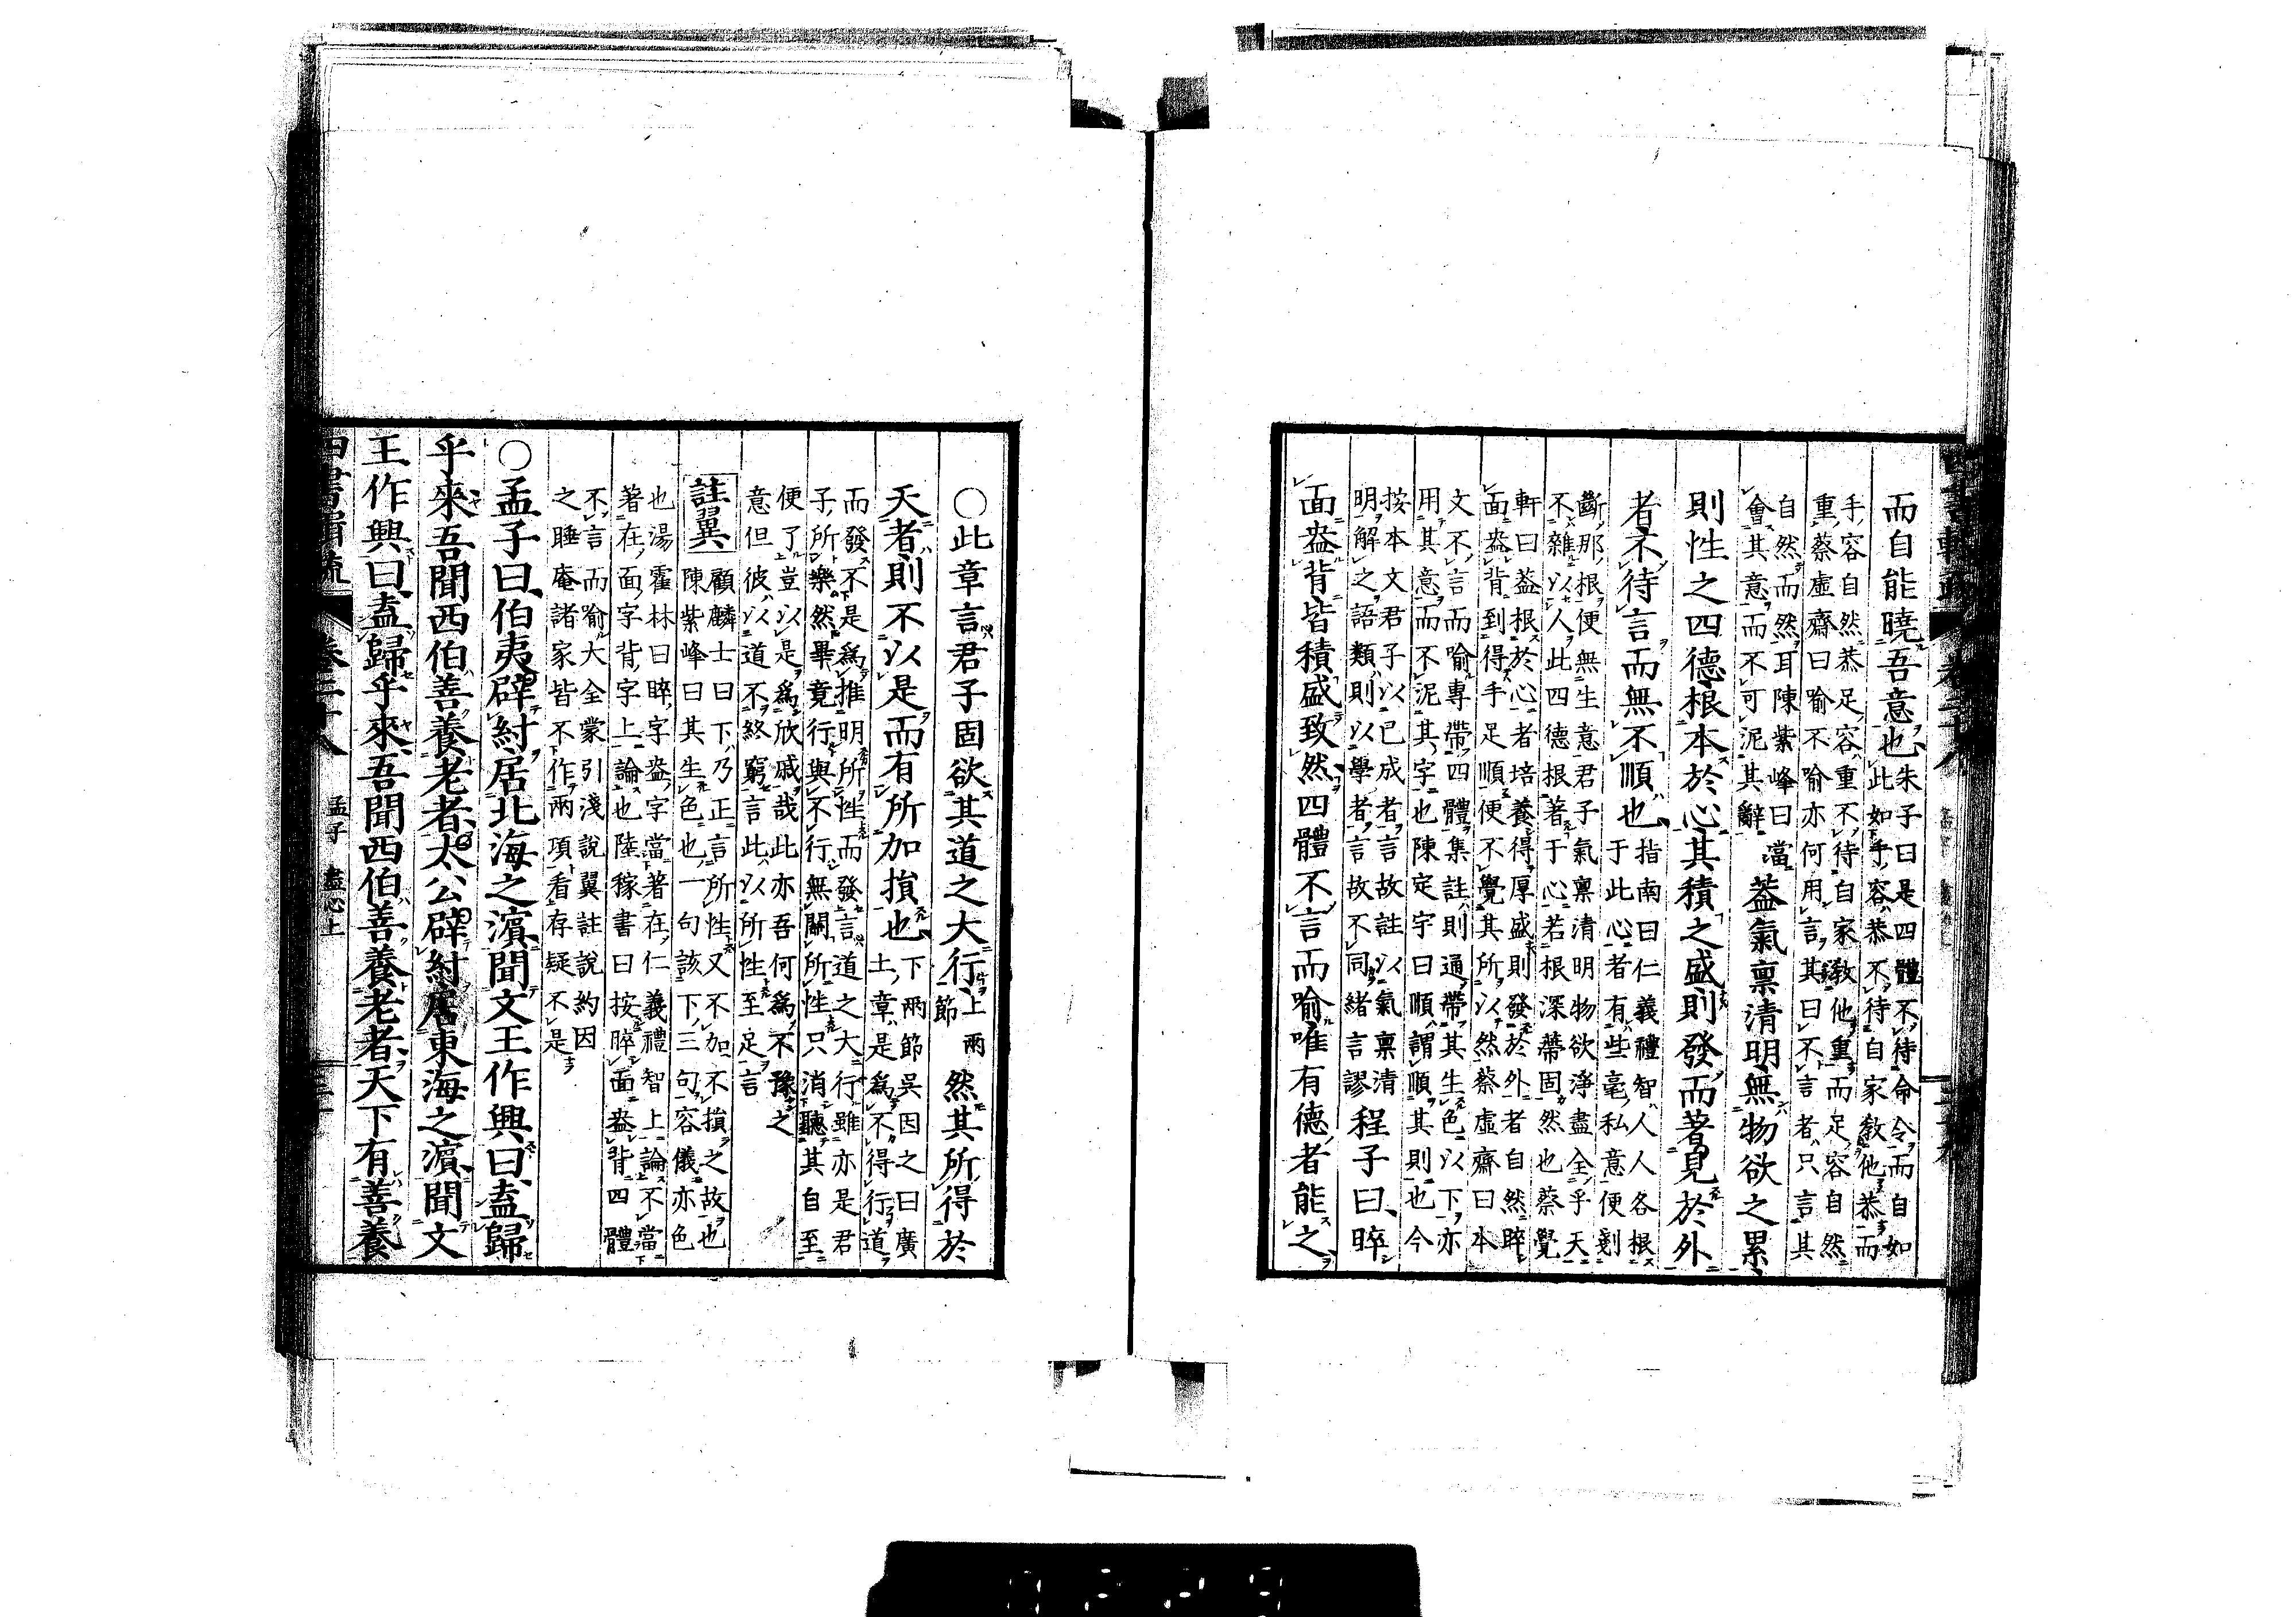 而自能曉吾意也
朱子曰是四體不待命令而自如
此如手容恭不待自家敎他恭而
手容自然恭足容重不待自家敎他重而足容自然
重蔡虛齋曰喻不喻亦何用言其曰不言者只言其
自然而然耳陳紫峰曰當
會其意而不可泥其辭
蓋氣稟清明無物欲之累
則性之四德根本於心其積之盛則發而著見於外
者不待言而無不順也
指南曰仁義禮智人人各根
于此心者有些毫私意便剗
斷那根便無生意君子氣稟清明物欲淨盡全乎天
不雜以人此四德根著于心若根深蒂固然也蔡覺
軒曰蓋根於心者培養得厚盛則發於外者自然睟
面盎背到得手足順便不覺其所以然蔡虛齋曰本
文不言而喻專帶四體集註則通帶其生色以下亦
用其意而不泥其字也陳定宇曰順謂順其則也今
按本文君子以已成者言故註以氣稟清
明解之語類則以學者言故不同緒言謬
程子曰睟
面盎背皆積盛致然四體不言而喻唯有德者能之
○此章言君子固欲其道之大行
上兩
節
然其所得於
天者則不以是而有所加損也
下兩節吳因之曰廣
土章是爲不得行道
而發不是爲推明所性而發言道之大行雖亦是君
子所樂然畢竟行與不行無關所性只消聽其自至
便了豈以是爲欣戚哉此亦吾何爲不豫之
意但彼以道不終窮言此以所性至足言
註翼
顧麟士曰下乃正言所性又不加不損之故也
陳紫峰曰其生色也一句該下三句容儀亦色
也湯霍林曰睟字盎字當著在仁義禮智上論不當
著在面字背字上論也陸稼書曰按睟面盎背四體
不言而喻大全蒙引淺說翼註說約因
之睡庵諸家皆不作兩項看存疑不是
○孟子曰伯夷辟紂居北海之濱聞文王作興曰盍歸
乎來吾聞西伯善養老者太公辟紂居東海之濱聞文
王作興曰盍歸乎來吾聞西伯善養老者天下有善養
孟子 盡心上